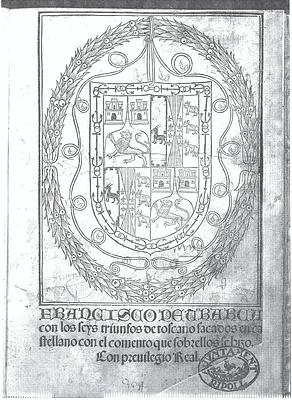 FRANCISCO PETRARCA
con los seys triunfos de toscano sacados en ca
stellano con el comento que sobrellos se hizo.
Con preuilegio Real.
AYUNTAMIENTO
RIPOLL